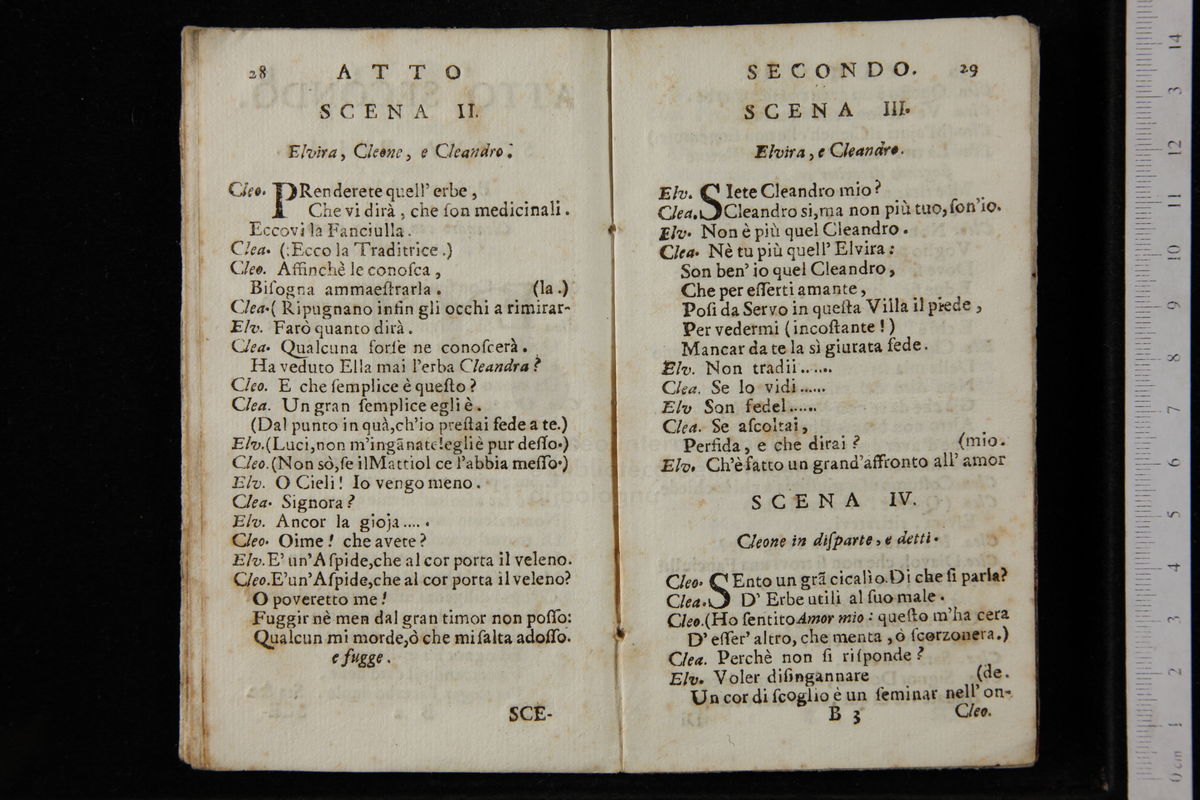 28 ATTO
SCENA II.
Elvira, Cleone, e Cleandro.
Cleo. PRenderete quell' erbe,
Che vi dirà, che ſon medicinali.
Eccovi la Fanciulla.
Clea. (:Ecco la Traditrice.)
Cleo. Affinchè le conoſca,
Biſogna ammaeſtrarla. (la.)
Clea. (Ripugnano infin gli occhi a rimirar-
Elv. Farò quanto dirà.
Clea. Qualcuna forſe ne conoſcerà.
Ha veduto Ella mai l'erba Cleandra?
Cleo. E che ſemplice è queſto?
Clea. Un gran ſemplice egli è.
(Dal punto in quà, ch'io preſtai fede a te.)
Elv. (Luci, non m'ingānate! egli è pur deſſo.)
Cleo. (Non sò, ſe il Mattiol ce l'abbia meſſo.)
Elv. O Cieli! Io vengo meno.
Clea. Signora?
Elv. Ancor la gioja....
Cleo. Oime! che avete?
Elv. E' un'Aſpide, che al cor porta il veleno.
Cleo. E' un'Aſpide, che al cor porta il veleno?
O poveretto me!
Fuggir nè men dal gran timor non poſſo:
Qualcun mi morde, ò che mi ſalta adoſſo.
e fugge.
SCE-
SECONDO. 29
SCENA III.
Elvira, e Cleandro.
Elv. SIete Cleandro mio?
Clea. Cleandro si, ma non più tuo, ſon'io.
Elv. Non è più quel Cleandro.
Clea. Nè tu più quell' Elvira:
Son ben' io quel Cleandro,
Che per eſſerti amante,
Poſi da Servo in queſta Villa il piede,
Per vedermi (incoſtante!)
Mancar da te la sì giurata fede.
Elv. Non tradii......
Clea. Se lo vidi......
Elv Son fedel......
Clea. Se aſcoltai,
Perfida, e che dirai? (mio.
Elv. Ch'è fatto un grand'affronto all' amor
SCENA IV.
Cleone in diſparte, e detti.
Cleo. SEnto un grā cicalìo. Di che ſi parla?
Clea. D' Erbe utili al ſuo male.
Cleo. (Ho ſentito Amor mio: queſto m'ha cera
D' eſſer' altro, che menta, ò ſcorzonera.)
Clea. Perchè non ſi riſponde?
Elv. Voler diſingannare (de.
Un cor di ſcoglio è un ſeminar nell' on-
B 3 Cleo.
14
13
12
11
10
9
8
7
6
5
4
3
2
1
0 cm